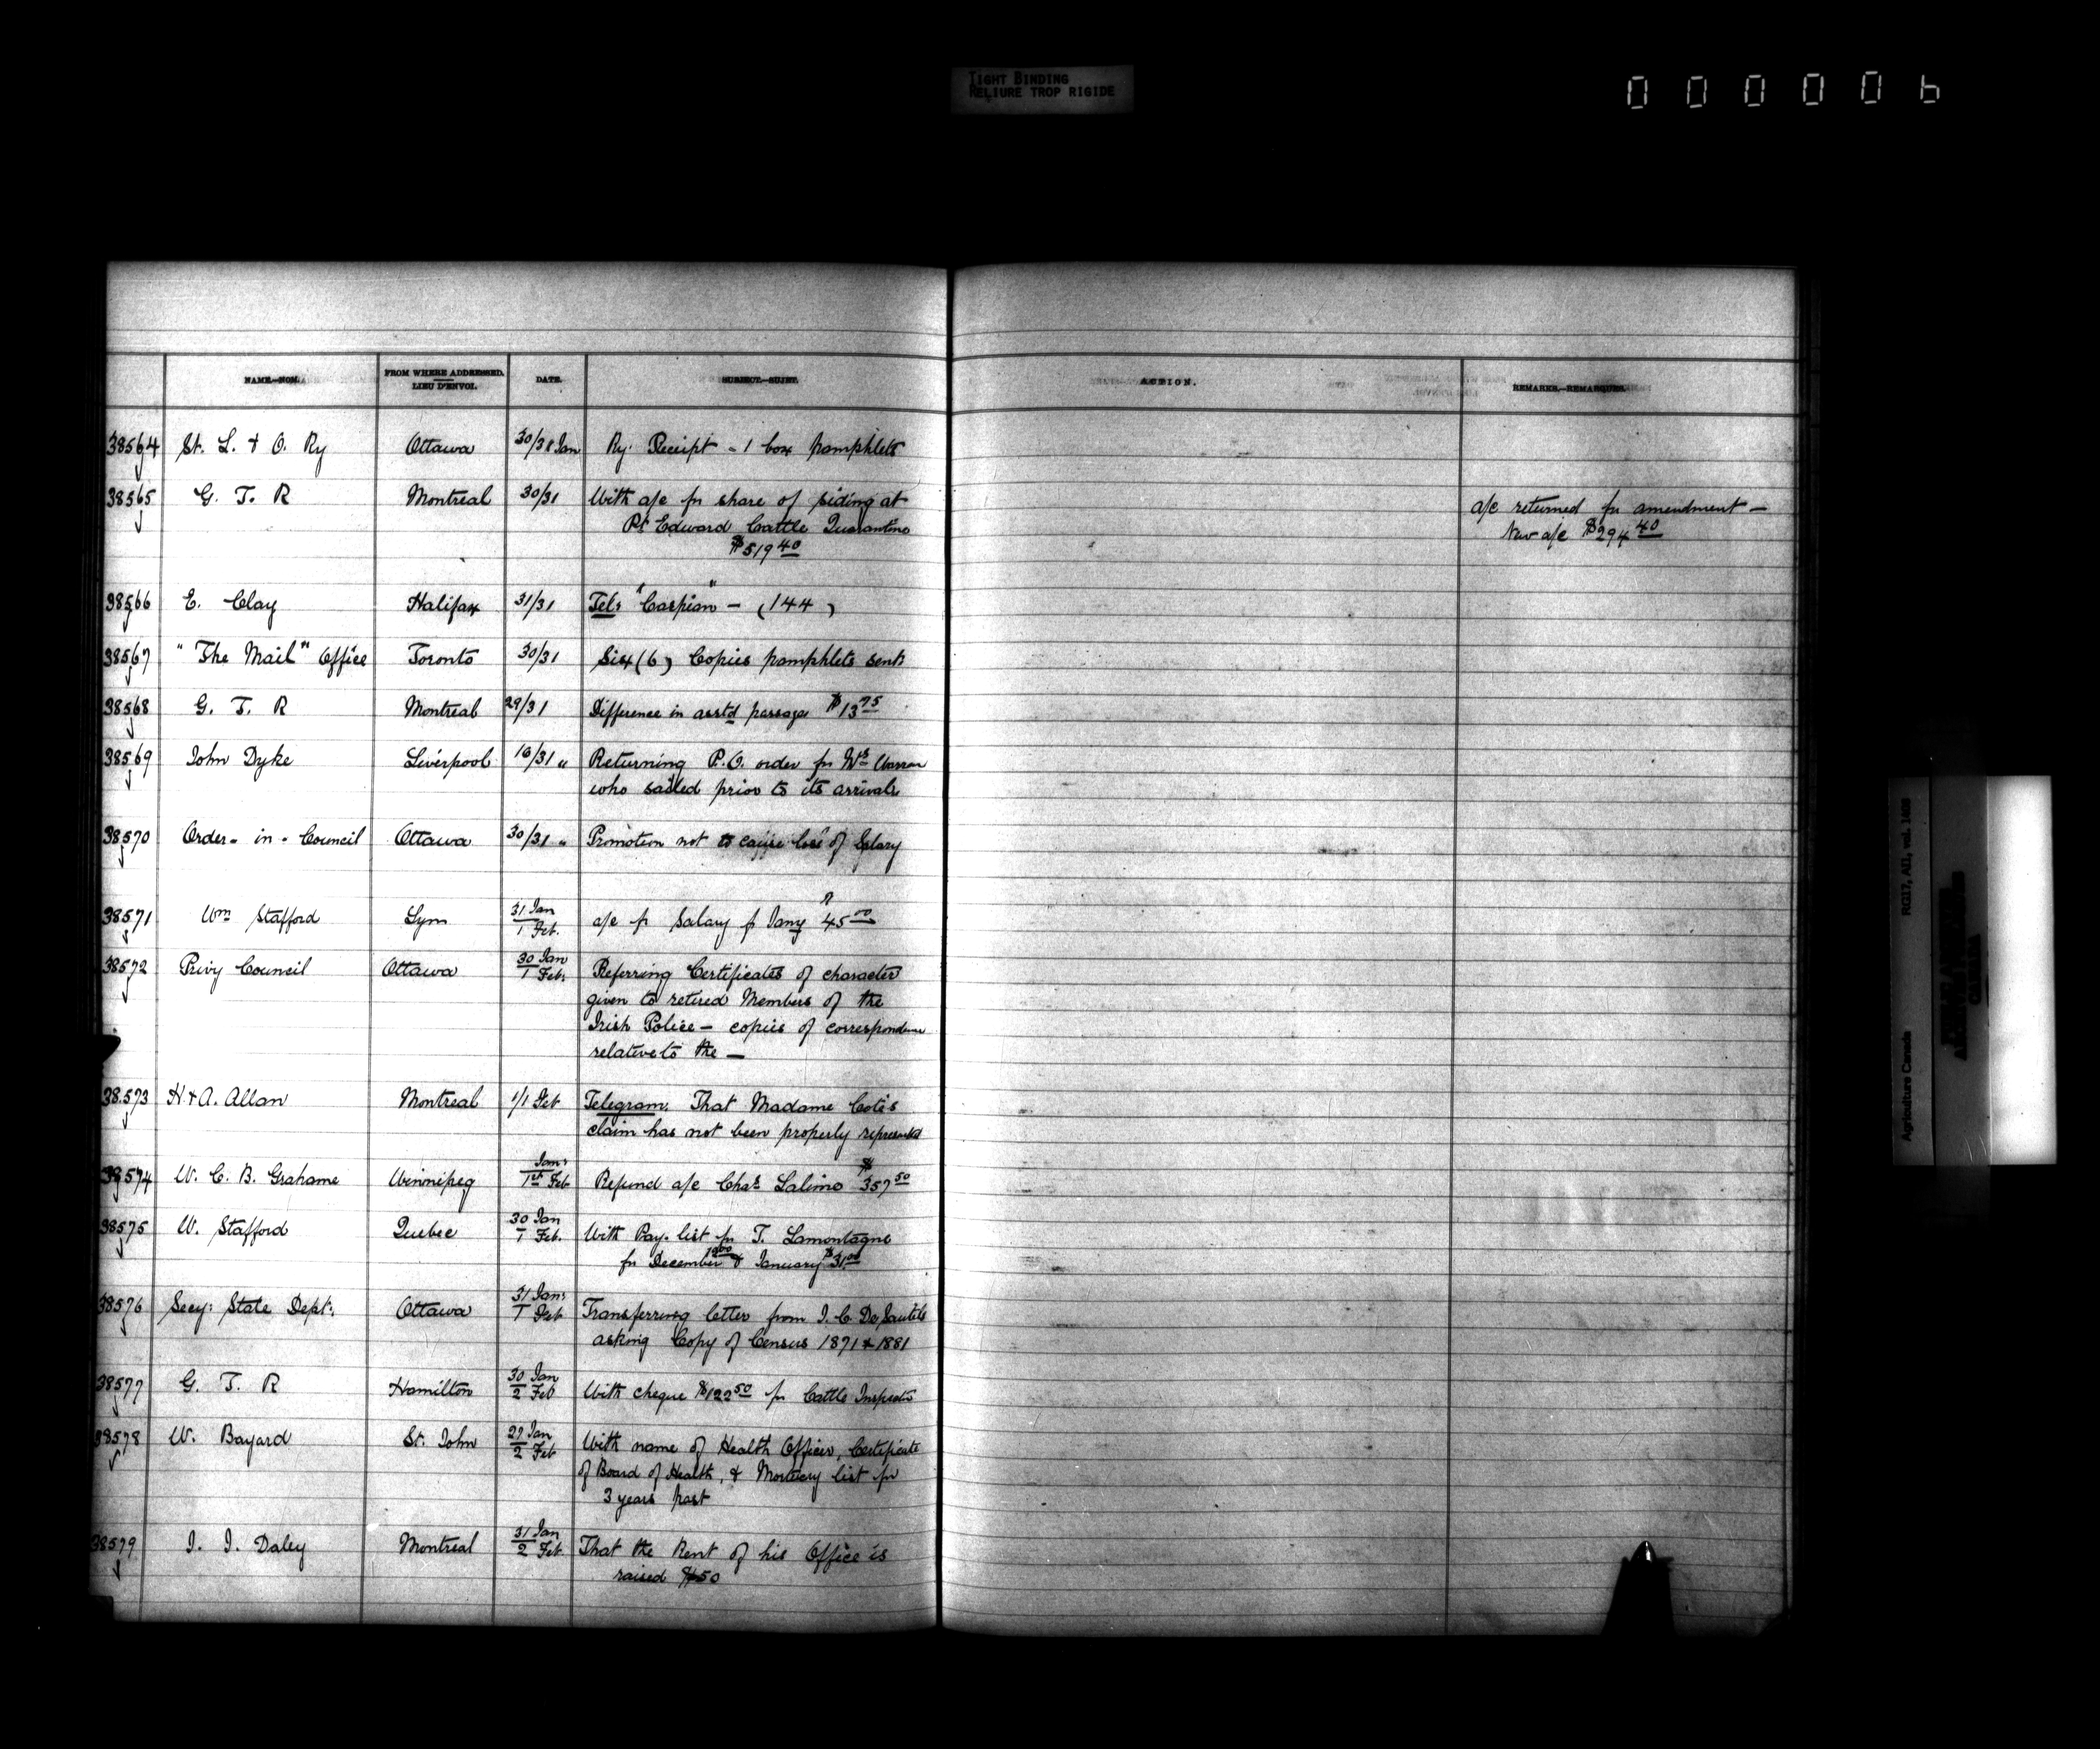 TIGHT BINDING
RELIURE TROP RIGIDE
000006
NAME.—NOM. FROM WHERE ADDRESSED. LIEU D'ENVOI. DATE. SUBJECT.—SUJET. ACTION. REMARKS.—REMARQUES.
38564 St. L. & O. Ry Ottawa 30/31 Jan Ry. Receipt - 1 box pamphlets
38565 G. T. R Montreal 30/31 With a/c for share of siding at
Pt Edward Cattle Quarantine
$519 40
a/c returned for amendment —
New a/c $294 40
38566 E. Clay Halifax 31/31 Tel: "Caspian" — (144)
38567 "The Mail" Office Toronto 30/31 Six (6) Copies pamphlets sent
38568 G. T. R Montreal 29/31 Difference in asstd passage $13 75
38569 John Dyke Liverpool 16/31 " Returning P.O. order for
who sailed prior to its arrival
38570 Order - in - Council Ottawa 30/31 " Promotion not to cause loss of Salary
38571 Wm Stafford Lyn 31 Jan / 1 Feb. a/c for Salary for Jany 45 00
38572 Privy Council Ottawa 30 Jan / 1 Feb. Referring Certificates of character
given to retired Members of the
Irish Police — copies of correspondence
relative to the —
38573 H & A. Allan Montreal 1/1 Feb Telegram. That Madame Cote's
claim has not been properly represented
38574 W. C. B. Grahame Winnipeg Jan: / 1st Feb Refund a/c Chas. Lalime $357 50
38575 W. Stafford Quebec 30 Jan / 1 Feb. With Pay-list for T. Lamontagne
for December & January $31 00
38576 Secy: State Dept. Ottawa 31 Jan: / 1 Feb Transferring letter from J. C. DeSautels
asking Copy of Census 1871 & 1881
38577 G. T. R Hamilton 30 Jan / 2 Feb With cheque $122 50 for Cattle Inspector
38578 W. Bayard St. John 27 Jan / 2 Feb With name of Health Officer, Certificate
of Board of Health, & Mortuary list for
3 years past
38579 J. J. Daley Montreal 31 Jan / 2 Feb That the Rent of his Office is
raised $50
Agriculture Canada RG17, AII, vol. 1609
PUBLIC ARCHIVES
ARCHIVES PUBLIQUES
CANADA